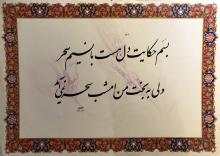 بسم حکایت دل هست با نسیم سحر
ولی به بخت من امشب سحر نمی‌آید